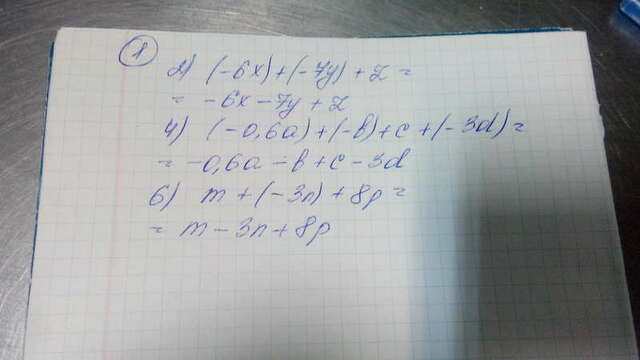 1
2) (-6x)+(-4y)+z=
= -6x-4y+z
4) (-0,6a)+(-b)+c+(-3d)=
= -0,6a-b+c-3d
6) m+(-3n)+8p=
= m-3n+8p